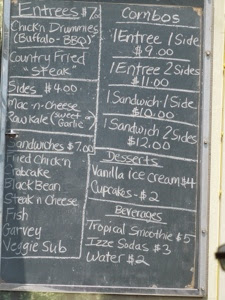 Entrees $7
Chick'n Drummies
(Buffalo - BBQ)
Country Fried
"Steak"
Sides $4.00
Mac-n-Cheese
Raw Kale (Sweet Garlic)
Sandwiches $7.00
Fried Chick'n
Crabcake
Black Bean
Steak-n Cheese
Fish
Garvey
Veggie Sub
Combos
1 Entree 1 Side
$9.00
1 Entree 2 Sides
$11.00
1 Sandwich-1 Side
$10.00
1 Sandwich 2 Sides
$12.00
Desserts
Vanilla ice cream $4
Cupcakes - $2
Beverages
Tropical Smoothie $5
Izze Sodas $3
Water $2